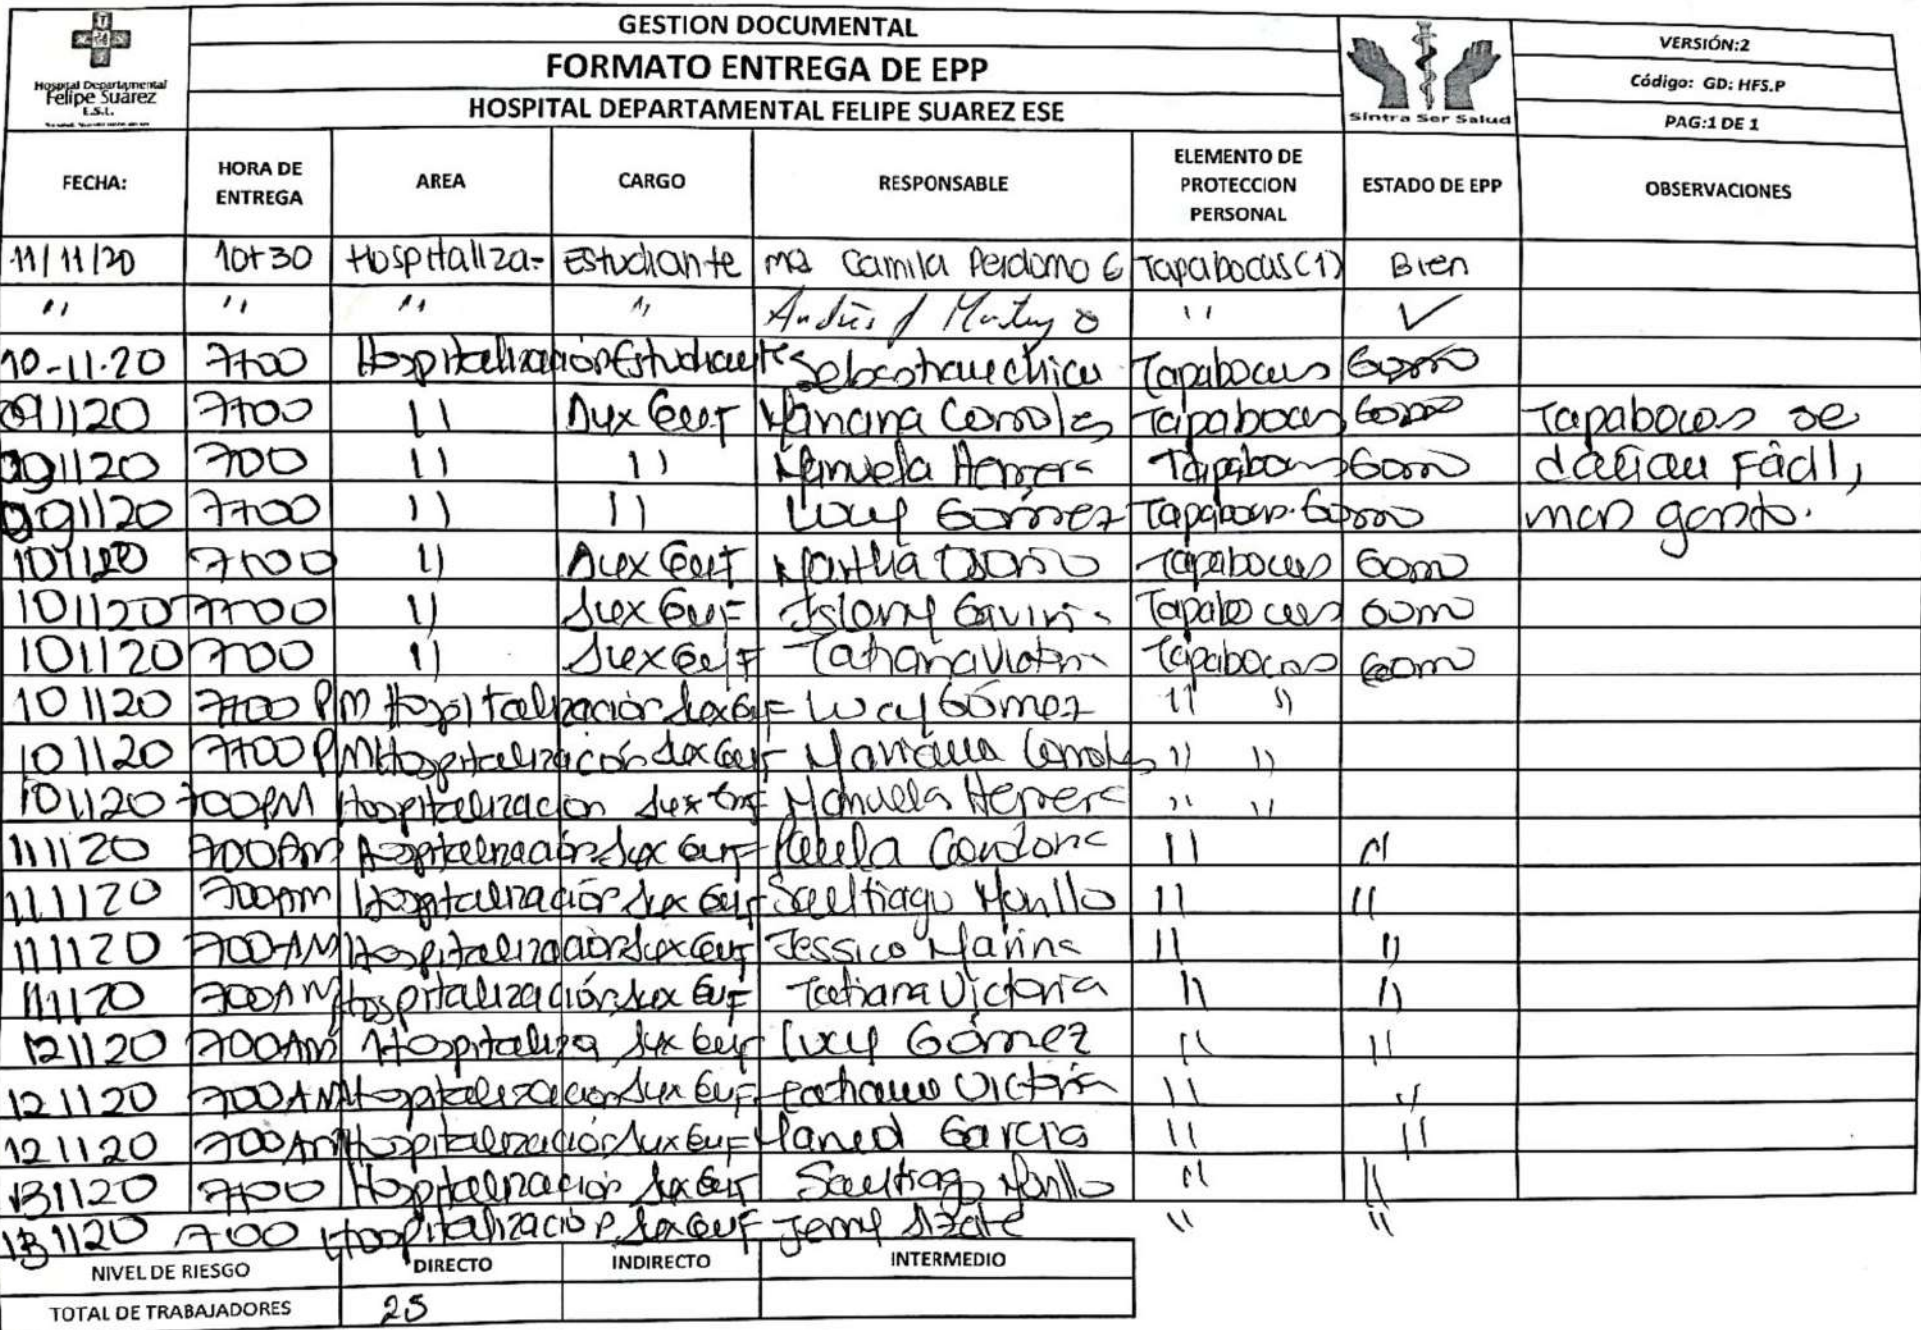 Hospital Departamental
Felipe Suárez
E.S.E.
GESTION DOCUMENTAL
FORMATO ENTREGA DE EPP
HOSPITAL DEPARTAMENTAL FELIPE SUAREZ ESE
Sintra Ser Salud
VERSIÓN:2
Código: GD: HFS.P
PAG:1 DE 1
FECHA: HORA DE ENTREGA AREA CARGO RESPONSABLE ELEMENTO DE PROTECCION PERSONAL ESTADO DE EPP OBSERVACIONES
11/11/20 10+30 Hospitaliza- Estudiante ma Camila Perdomo G Tapabocas (1) Bien
" " " " Andrés " ✓
10-11-20 7+00 Hospitalización Estudiante Tapabocas
091120 7+00 " Aux Enf Tapabocas Tapabocas se
091120 700 " " Manuela Herrera Tapabocas dañan Fácil,
091120 7+00 " " Lucy Gómez Tapabocas
101120 7+00 " Aux Enf Martha Osorio Tapabocas
101120 7+00 " Aux Enf Tapabocas
101120 700 " Aux Enf Tatiana Tapabocas
101120 7+00 PM Hospitalización Aux Enf Lucy Gómez " "
101120 7+00 PM Hospitalización Aux Enf " "
101120 700PM Hospitalización Aux Enf Manuela Herrera " "
111120 700AM Hospitalización Aux Enf " "
111120 700AM Hospitalización Aux Enf Santiago " "
111120 700AM Hospitalización Aux Enf " "
111120 700AM Hospitalización Aux Enf Tatiana Victoria " "
121120 700AM Hospitaliza Aux Enf Lucy Gómez " "
121120 700AM Hospitalización Aux Enf Tatiana Victoria " "
121120 700AM Hospitalización Aux Enf Garcia " "
131120 7+00 Hospitalización Aux Enf Santiago " "
131120 7+00 Hospitalización Aux Enf " "
NIVEL DE RIESGO DIRECTO INDIRECTO INTERMEDIO
TOTAL DE TRABAJADORES 25